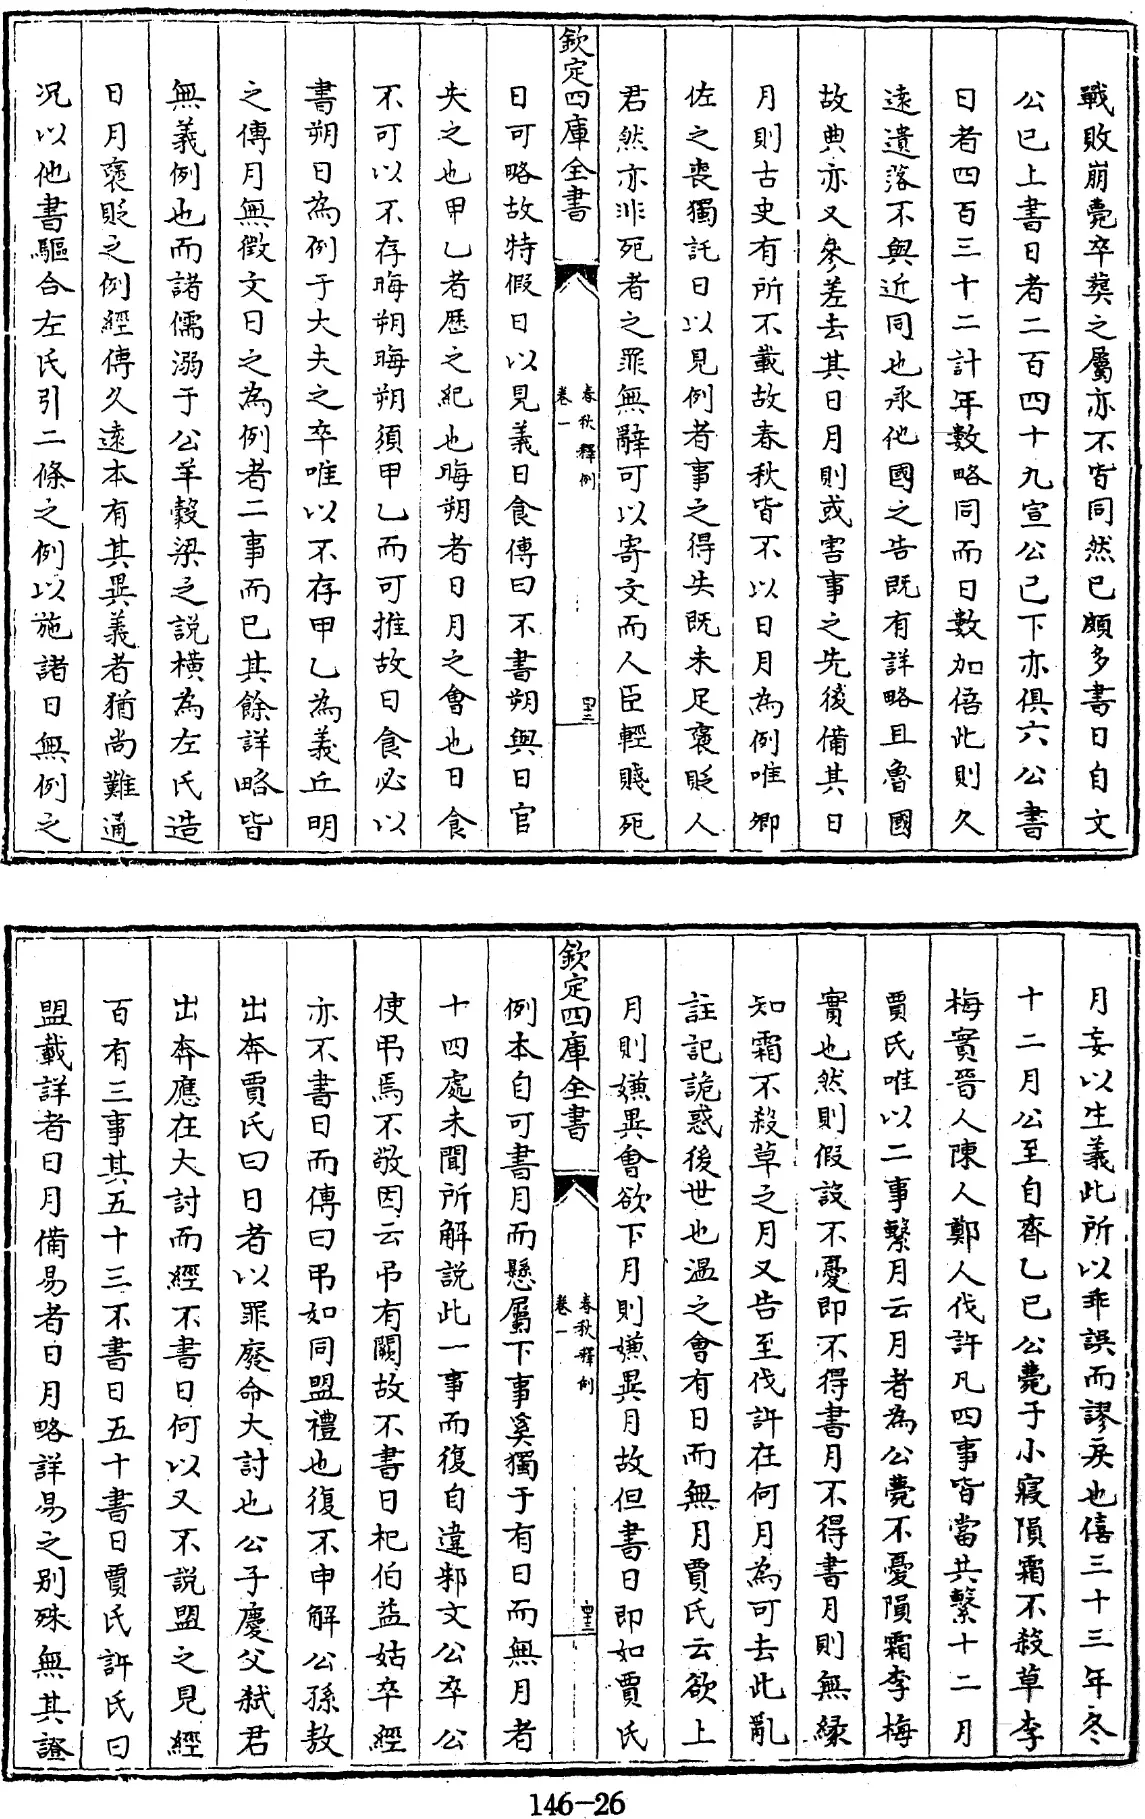 戰敗崩薨卒葬之屬亦不皆同然已頗多書日自文
公已上書日者二百四十九宣公已下亦俱六公書
日者四百三十二計年數略同而日數加倍此則久
遠遺落不與近同也承他國之告既有詳略且魯國
故典亦又參差去其日月則或害事之先後備其日
月則古史有所不載故春秋皆不以日月為例唯卿
佐之喪獨託日以見例者事之得失既未足褒貶人
君然亦非死者之罪無辭可以寄文而人臣輕賤死
欽定四庫全書
春秋釋例
卷一
日可略故特假日以見義日食傳曰不書朔與日官
失之也甲乙者歷之紀也晦朔者日月之會也日食
不可以不存晦朔晦朔須甲乙而可推故日食必以
書朔日為例于大夫之卒唯以不存甲乙為義丘明
之傳月無徵文日之為例者二事而已其餘詳略皆
無義例也而諸儒溺于公羊榖梁之說橫為左氏造
日月褒貶之例經傳久遠本有其異義者猶尚難通
况以他書驅合左氏引二條之例以施諸日無例之
月妄以生義此所以乖誤而謬戾也僖三十三年冬
十二月公至自齊乙巳公薨于小寢隕霜不殺草李
梅實晉人陳人鄭人伐許凡四事皆當共繫十二月
賈氏唯以二事繫月云月者為公薨不憂隕霜李梅
實也然則假設不憂即不得書月不得書月則無縁
知霜不殺草之月又告至伐許在何月為可去此亂
註記詭惑後世也溫之會有日而無月賈氏云欲上
月則嫌異會欲下月則嫌異月故但書日即如賈氏
欽定四庫全書
春秋釋例
卷一
例本自可書月而懸屬下事奚獨于有日而無月者
十四處未聞所解說此一事而復自違邾文公卒公
使弔焉不敬因云弔有闕故不書日杞伯益姑卒經
亦不書日而傳曰弔如同盟禮也復不申解公孫敖
出奔賈氏曰日者以罪廢命大討也公子慶父弒君
出奔應在大討而經不書日何以又不說盟之見經
百有三事其五十三不書日五十書日賈氏許氏曰
盟載詳者日月備易者日月略詳易之别殊無其證
146-26